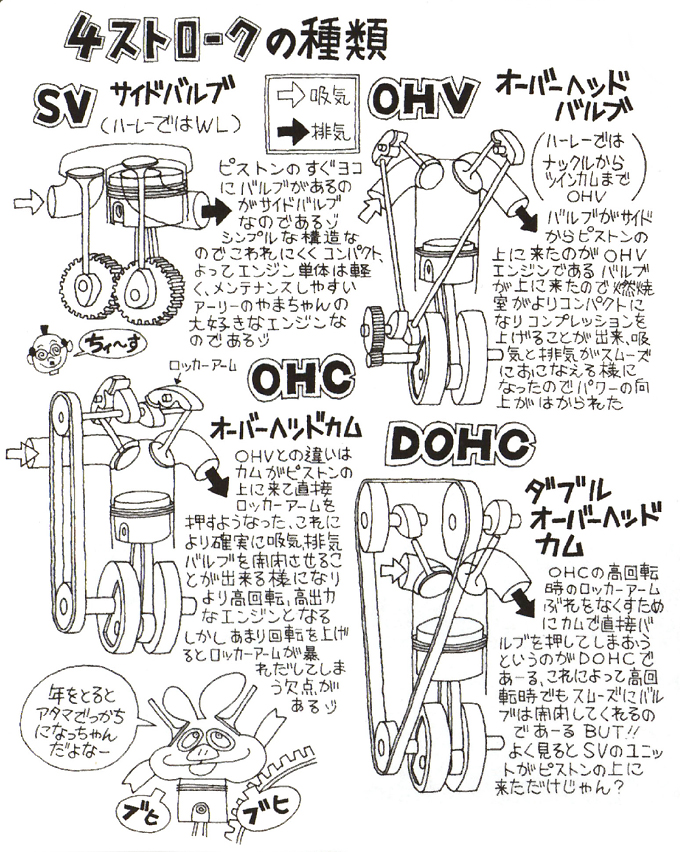 4ストロークの種類
SV サイドバルブ
(ハーレーではWL)
吸気
排気
OHV オーバーヘッド
バルブ
(ハーレーでは
ナックルから
ツインカムまで
OHV)
ピストンのすぐヨコ
にバルブがあるの
がサイドバルブ
なのであるゾ
シンプルな構造な
のでこわれにくくコンパクト、
よってエンジン単体は軽
く、メンテナンスしやすい
アーリーのやまちゃんの
大好きなエンジンな
のであるゾ
ちィ〜す
バルブがサイド
からピストンの
上に来たのがOHV
エンジンである バルブ
が上に来たので燃焼
室がよりコンパクトに
なりコンプレッションを
上げることが出来、吸
気と排気がスムーズ
におこなえる様に
なったのでパワーの向
上がはかられた
ロッカーアーム
OHC
オーバーヘッドカム
OHVとの違いは
カムがピストンの
上に来て直接
ロッカーアームを
押すようなった、これに
より確実に吸気、排気
バルブを開閉させるこ
とが出来る様になり
より高回転、高出力
なエンジンとなる
しかしあまり回転を上げ
るとロッカーアームが暴
れだしてしま
う欠点が
あるゾ
DOHC
ダブル
オーバーヘッド
カム
OHCの高回転
時のロッカーアーム
ぶれをなくすため
にカムで直接バ
ルブを押してしまおう
というのがDOHCで
あーる、これによって高回
転時でもスムーズにバル
ブは開閉してくれるの
であーる BUT!!
よく見るとSVのユニッ
トがピストンの上に
来ただけじゃん?
年をとると
アタマでっかち
になっちゃん
だよなー
ブヒ
ブヒ